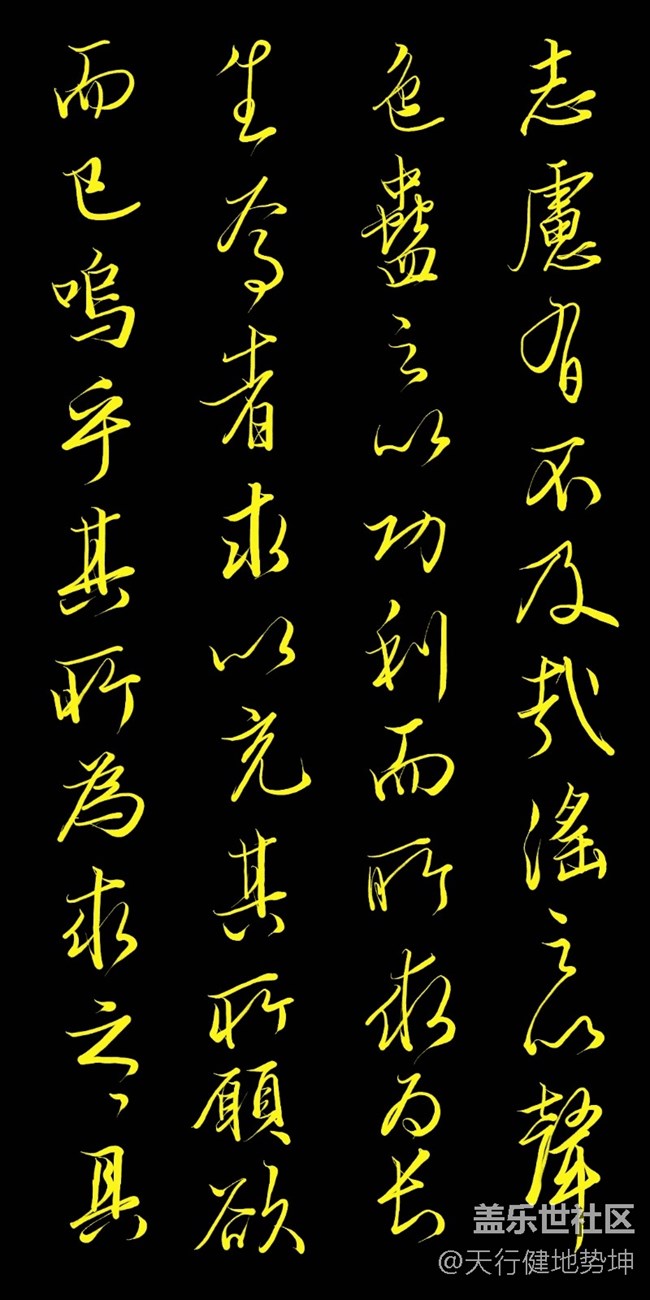 志慮有不及哉滛之以聲
色蠱之以功利而所求为长
生焉者求以充其所願欲
而已嗚乎其所為求之、具
盖乐世社区
@天行健地势坤